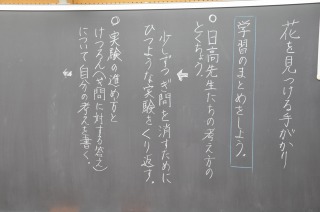 花を見つける手がかり
学習のまとめをしよう。
○日高先生たちの考え方の
とくちょう。
少しずつぎ問を消すために
ひつような実験をくり返す。
○実験の進め方と
けつろん(ぎ問に対する答え)
について自分の考えを書く。